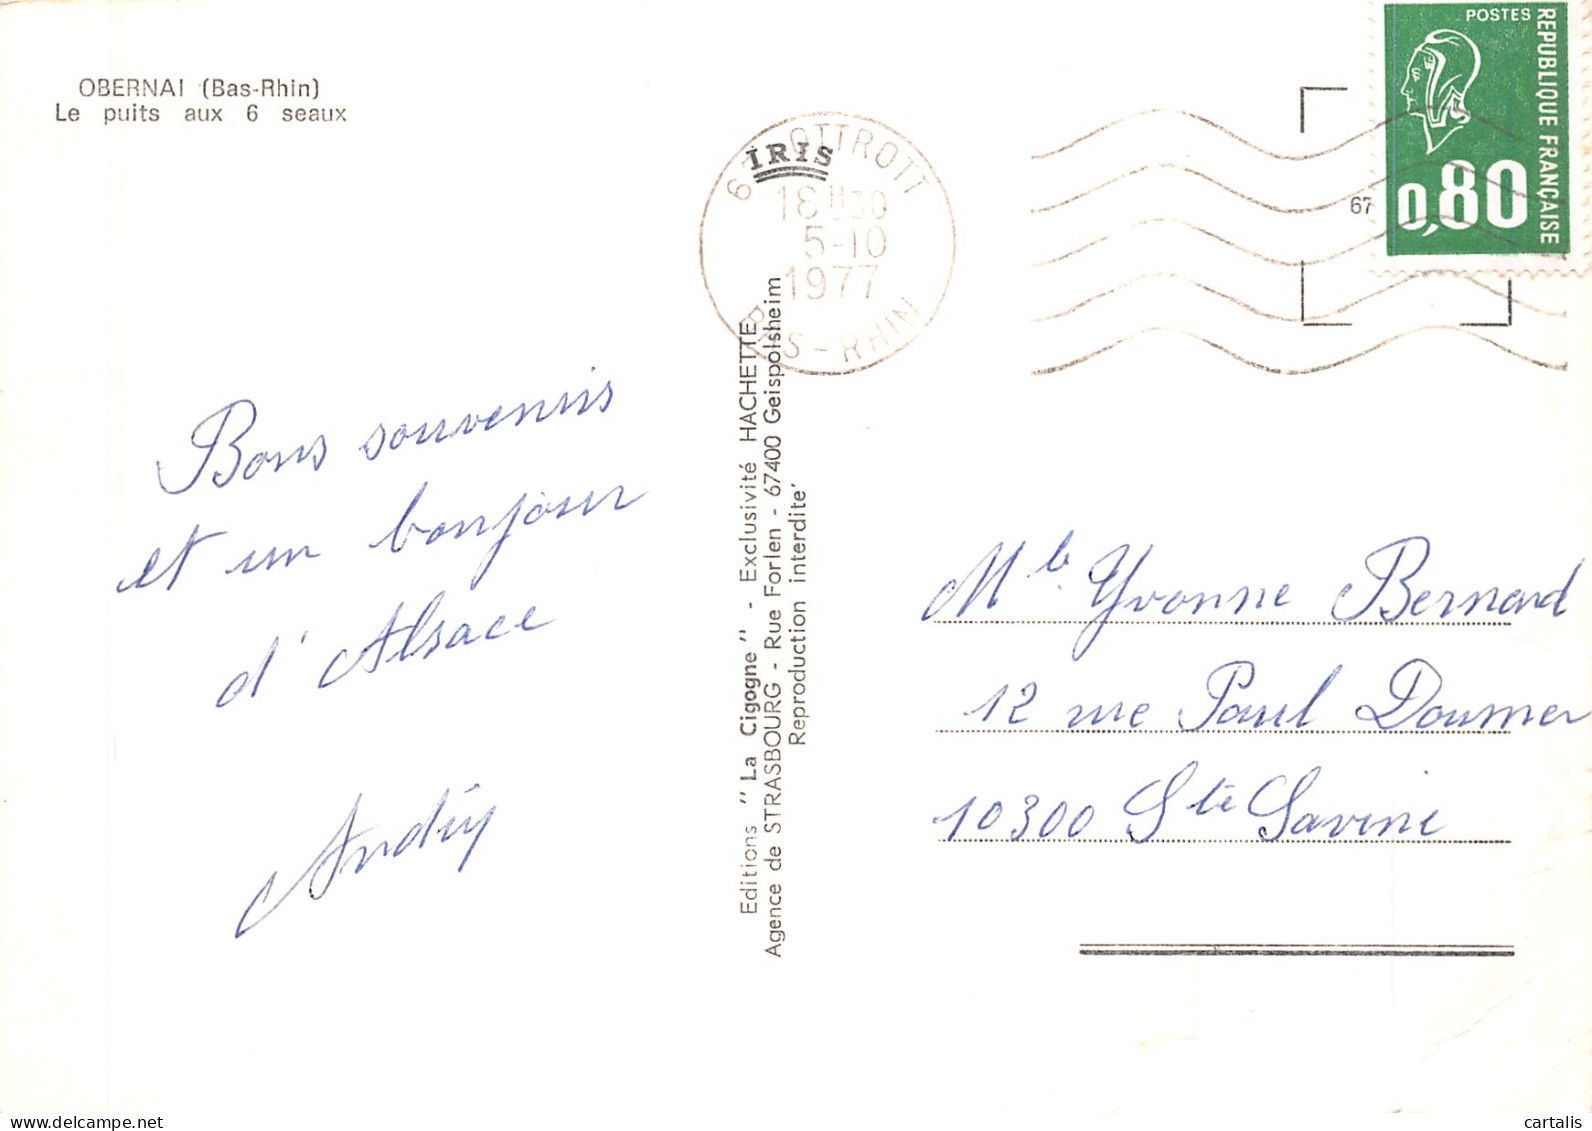 OBERNAI (Bas-Rhin)
Le puits aux 6 seaux
POSTES
REPUBLIQUE FRANÇAISE
0,80
67
67 OTTROTT
IRIS
18H30
5-10
1977
BAS-RHIN
Bons souvenirs
et un bonjour
d'Alsace
Editions "La Cigogne" - Exclusivité HACHETTE
Agence de STRASBOURG - Rue Forlen - 67400 Geispolsheim
Reproduction interdite'
Mle Yvonne Bernard
12 rue Paul Doumer
10300 Ste Savine
cartalis